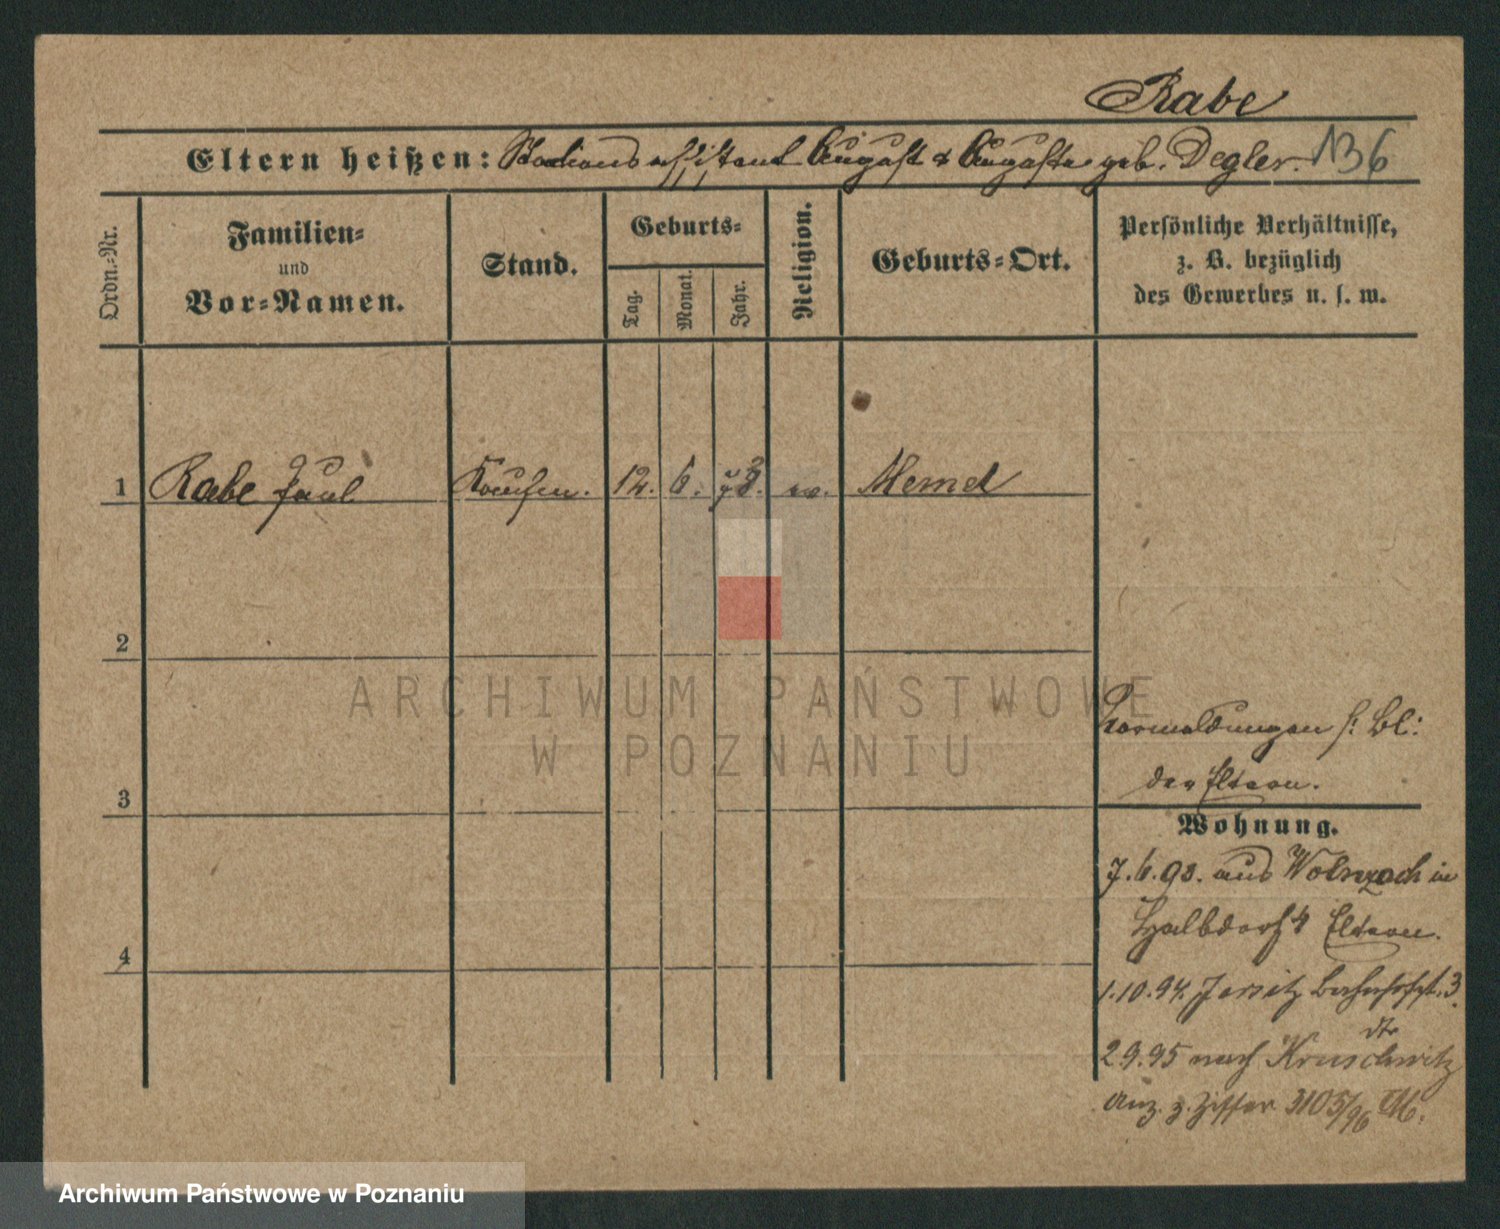 Rabe
Eltern heißen: Stationsassistent August & Auguste geb. Degler. 136
Ordn.-Nr.
Familien-
und
Vor-Namen.
Stand.
Geburts-
Tag.
Monat.
Jahr.
Religion.
Geburts-Ort.
Persönliche Verhältnisse,
z. B. bezüglich
des Gewerbes u. s. w.
1 Rabe Paul Kaufm. 12. 6. 78. ev. Memel
2
3
4
ARCHIWUM PAŃSTWOWE
W POZNANIU
Vormeldungen s: Bl:
der Eltern.
Wohnung.
7.6.93. aus in
Halbdorfs Eltern.
1.10.94. Jersitz Bahnhofst. 3.
dto
2.9.95 nach Kruschwitz
Anz. z. Ziffer 3105/96 M.
Archiwum Państwowe w Poznaniu